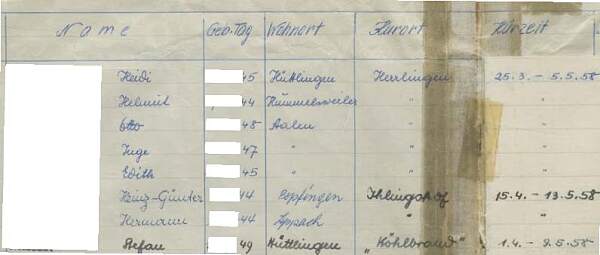 Name Geb.Tag Wohnort Kurort Kurzeit
Heidi 45 Hüttlingen Herrlingen 25.3. – 5.5.58
Helmut 44 Himmelsweiler " "
Otto 48 Aalen " "
Inge 47 " " "
Edith 45 " " "
Heinz-Günter 44 Bopfingen Ihlingshof 15.4. – 13.5.58
Hermann 44 Lippach " "
Stefan 49 Hüttlingen „Köhlbrand" 1.4. – 9.5.58